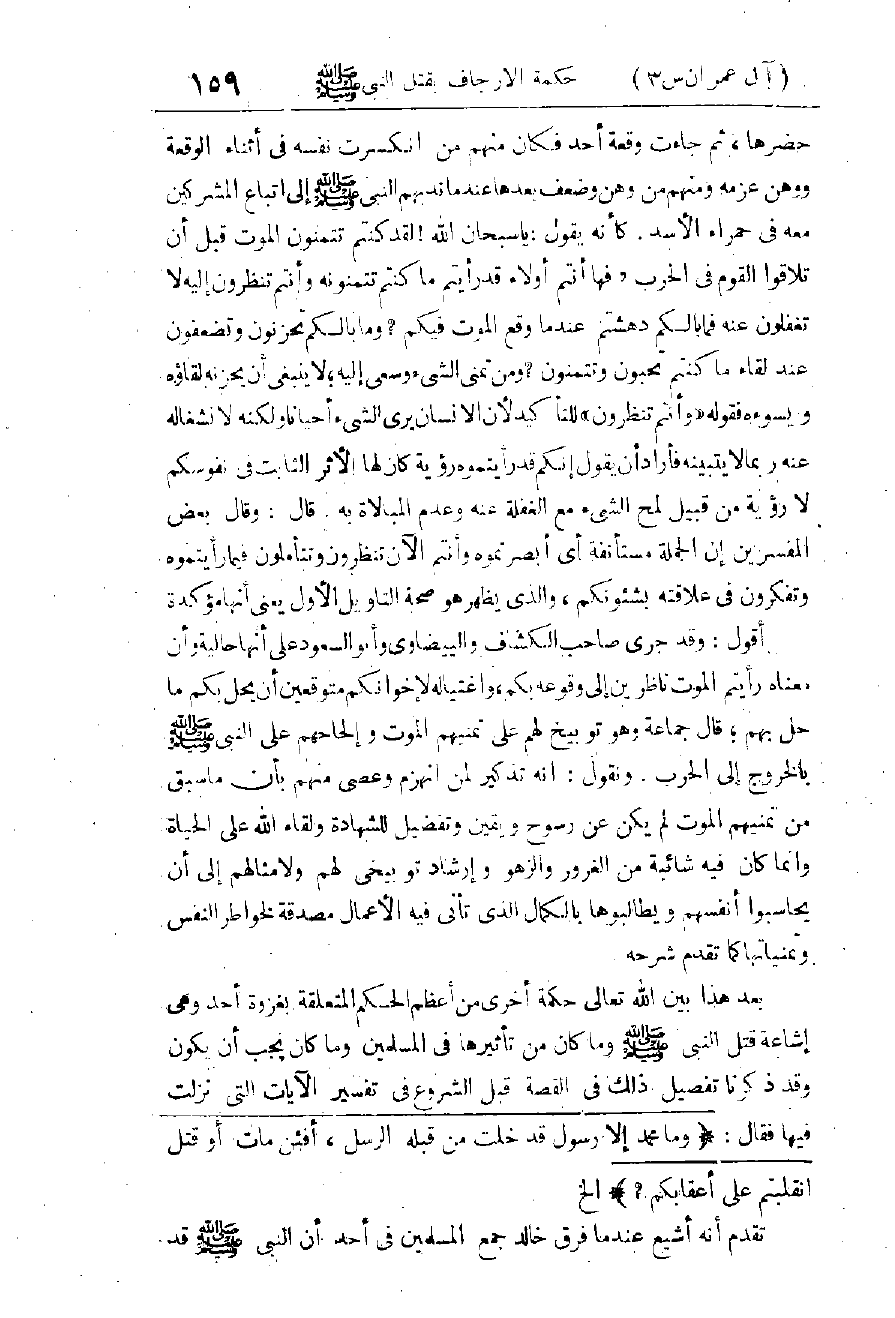 ( آل عمران س٣ ) حكمة الارجاف بقتل النبي ﷺ ١٥٩
حضرها ، ثم جاءت وقعة أحد فكان منهم من انكسرت نفسه فى أثناء الوقعة
ووهن عزمه ومنهم من وهن وضعف بعدها عندما ندبهم النبي ﷺ إلى اتباع المشركين
معه فى حمراء الأسد . كأنه يقول : ياسبحان الله ! لقد كنتم تتمنون الموت قبل أن
تلاقوا القوم فى الحرب ، فها أنتم أولاء قد رأيتم ما كنتم تتمنونه وأنتم تنظرون إليه لا
تغفلون عنه فما بالكم دهشتم عندما وقع الموت فيكم ؟ وما بالكم تحزنون وتضعفون
عند لقاء ما كنتم تحبون وتتمنون ؟ ومن تمنى الشىء وسعى إليه ، لا ينبغى أن يحزنه لقاؤه
ويسوءه فقوله «وأنتم تنظرون» للتأكيد لأن الانسان يرى الشىء أحيانا ولكنه لانشغاله
عنه ربما لا يتبينه فأراد أن يقول إنكم قد رأيتموه رؤية كان لها الأثر الثابت فى نفوسكم
لا رؤية من قبيل لمح الشىء مع الغفلة عنه وعدم المبالاة به . قال : وقال بعض
المفسرين إن الجملة مستأنفة أى أبصرتموه وأنتم الآن تنظرون وتتأملون فيما رأيتموه
وتفكرون فى علاقته بشئونكم ، والذى يظهر هو صحة التاويل الأول يعنى أنها مؤكدة
أقول : وقد جرى صاحب الكشاف والبيضاوى وأبو السعود على أنها حالية وأن
معناه رأيتم الموت ناظرين إلى وقوعه بكم ، واغتياله لإخوانكم متوقعين أن يحل بكم ما
حل بهم ، قال جماعة وهو توبيخ لهم على تمنيهم الموت وإلحاحهم على النبي ﷺ
بالخروج إلى الحرب . ونقول : انه تذكير لمن انهزم وعصى منهم بأن ماسبق
من تمنيهم الموت لم يكن عن رسوخ ويقين وتفضيل للشهادة ولقاء الله على الحياة
وانما كان فيه شائبة من الغرور والزهو وإرشاد توبيخى لهم ولامثالهم إلى أن
يحاسبوا أنفسهم ويطالبوها بالكمال الذى تأتى فيه الأعمال مصدقة لخواطر النفس
وتمنياتها كما تقدم شرحه
بعد هذا بين الله تعالى حكمة أخرى من أعظم الحكم المتعلقة بغزوة أحد وهى
إشاعة قتل النبي ﷺ وما كان من تأثيرها فى المسلمين وما كان يجب أن يكون
وقد ذكرنا تفصيل ذلك فى القصة قبل الشروع فى تفسير الآيات التى نزلت
فيها فقال : ﴿ وما محمد إلا رسول قد خلت من قبله الرسل ، أفئن مات أو قتل
انقلبتم على أعقابكم ؟ ﴾ الخ
تقدم أنه أشيع عندما فرق خالد جمع المسلمين فى أحد أن النبي ﷺ قد